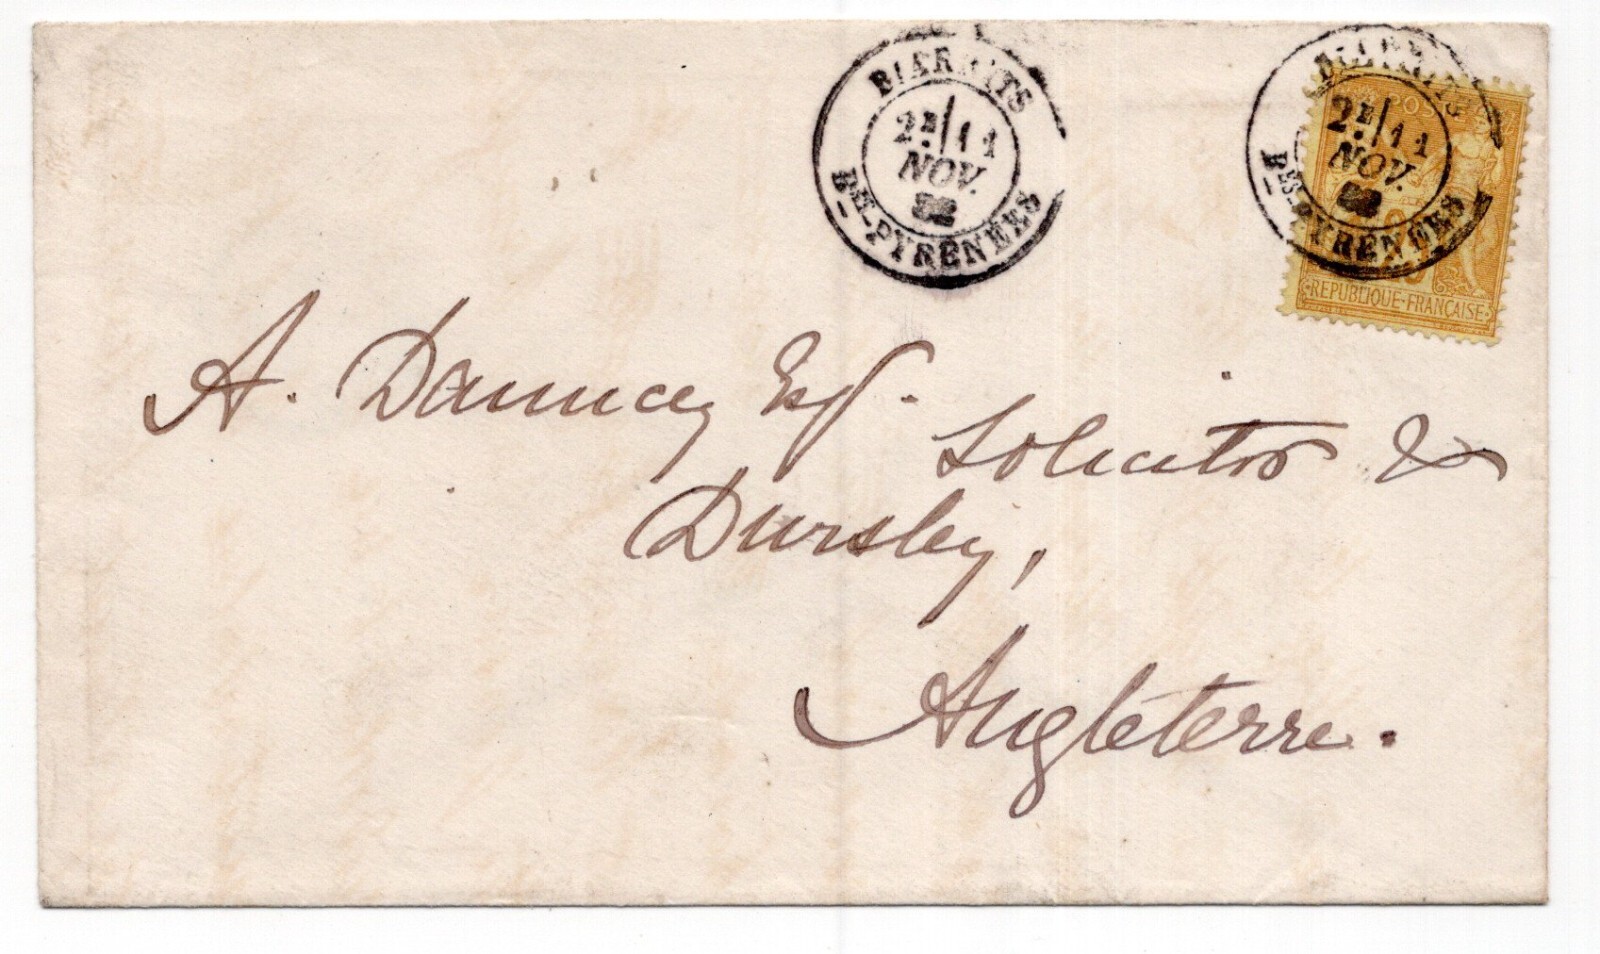 BIARRITS
2E/11
NOV.
BSES-PYRÉNÉES
BIARRITS
2E/11
NOV.
BSES-PYRÉNÉES
REPUBLIQUE·FRANÇAISE
A. Dauncey Esqr.
Solicitor &
Dursley,
Angleterre.